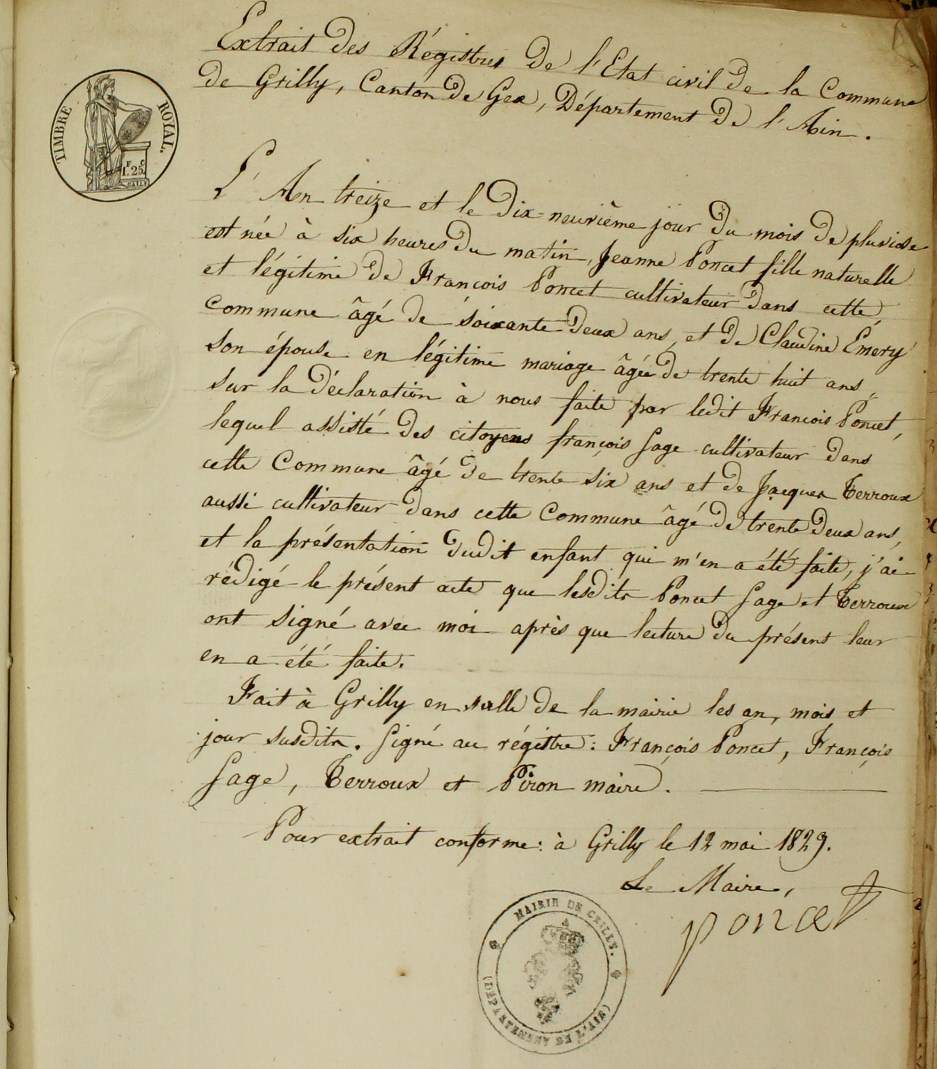 TIMBRE ROYAL.
1 F. 25 C
Extrait des Régistres de l'Etat civil de la Commune
de Grilly, Canton de Gex, Département de l'Ain.
L'An treize et le dix-neuvième jour du mois de pluviose
est née à six heures du matin, Jeanne Poncet fille naturelle
et légitime de François Poncet cultivateur dans cette
Commune âgé de soixante deux ans, et de Claudine Émery
son épouse en légitime mariage âgée de trente huit ans,
sur la déclaration à nous faite par ledit François Poncet,
lequel assisté des citoyens françois Sage cultivateur dans
cette Commune âgé de trente six ans et de Jacques Terroux
aussi cultivateur dans cette Commune âgé de trente deux ans,
et la présentation dudit enfant qui m'en a été faite, j'ai
rédigé le présent acte que lesdits Poncet Sage et Terroux
ont signé avec moi après que lecture du présent leur
en a été faite.
Fait à Grilly en salle de la mairie les an, mois et
jour susdits. Signé au régistre: François Poncet, François
Sage, Terroux et Piron maire.
Pour extrait conforme: à Grilly le 12 mai 1829.
Le Maire,
poncet
MAIRIE DE GRILLY.